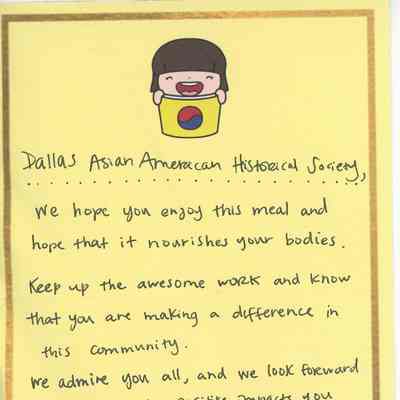 Dallas Asian American Historical Society,
We hope you enjoy this meal and
hope that it nourishes your bodies.
Keep up the awesome work and know
that you are making a difference in
this community.
We admire you all, and we look forward
impacts you